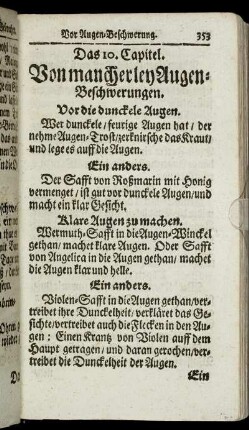 Vor Augen-Beschwerung. 353
Das 10. Capitel.
Von mancherley Augen-
Beschwerungen.
Vor die dunckele Augen.
Wer dunckele / feurige Augen hat / der
nehme Augen-Trost / zerknirsche das Kraut /
und lege es auff die Augen.
Ein anders.
Der Safft von Roßmarin mit Honig
vermenget / ist gut vor dunckele Augen / und
macht ein klar Gesicht.
Klare Augen zu machen.
Wermuth-Safft in die Augen-Winckel
gethan / machet klare Augen. Oder Safft
von Angelica in die Augen gethan / machet
die Augen klar und helle.
Ein anders.
Violen-Safft in die Augen gethan / ver-
treibet ihre Dunckelheit / verkläret das Ge-
sichte / vertreibet auch die Flecken in den Au-
gen : Einen Krantz von Violen auff dem
Haupt getragen / und daran gerochen / ver-
treibet die Dunckelheit der Augen.
Ein